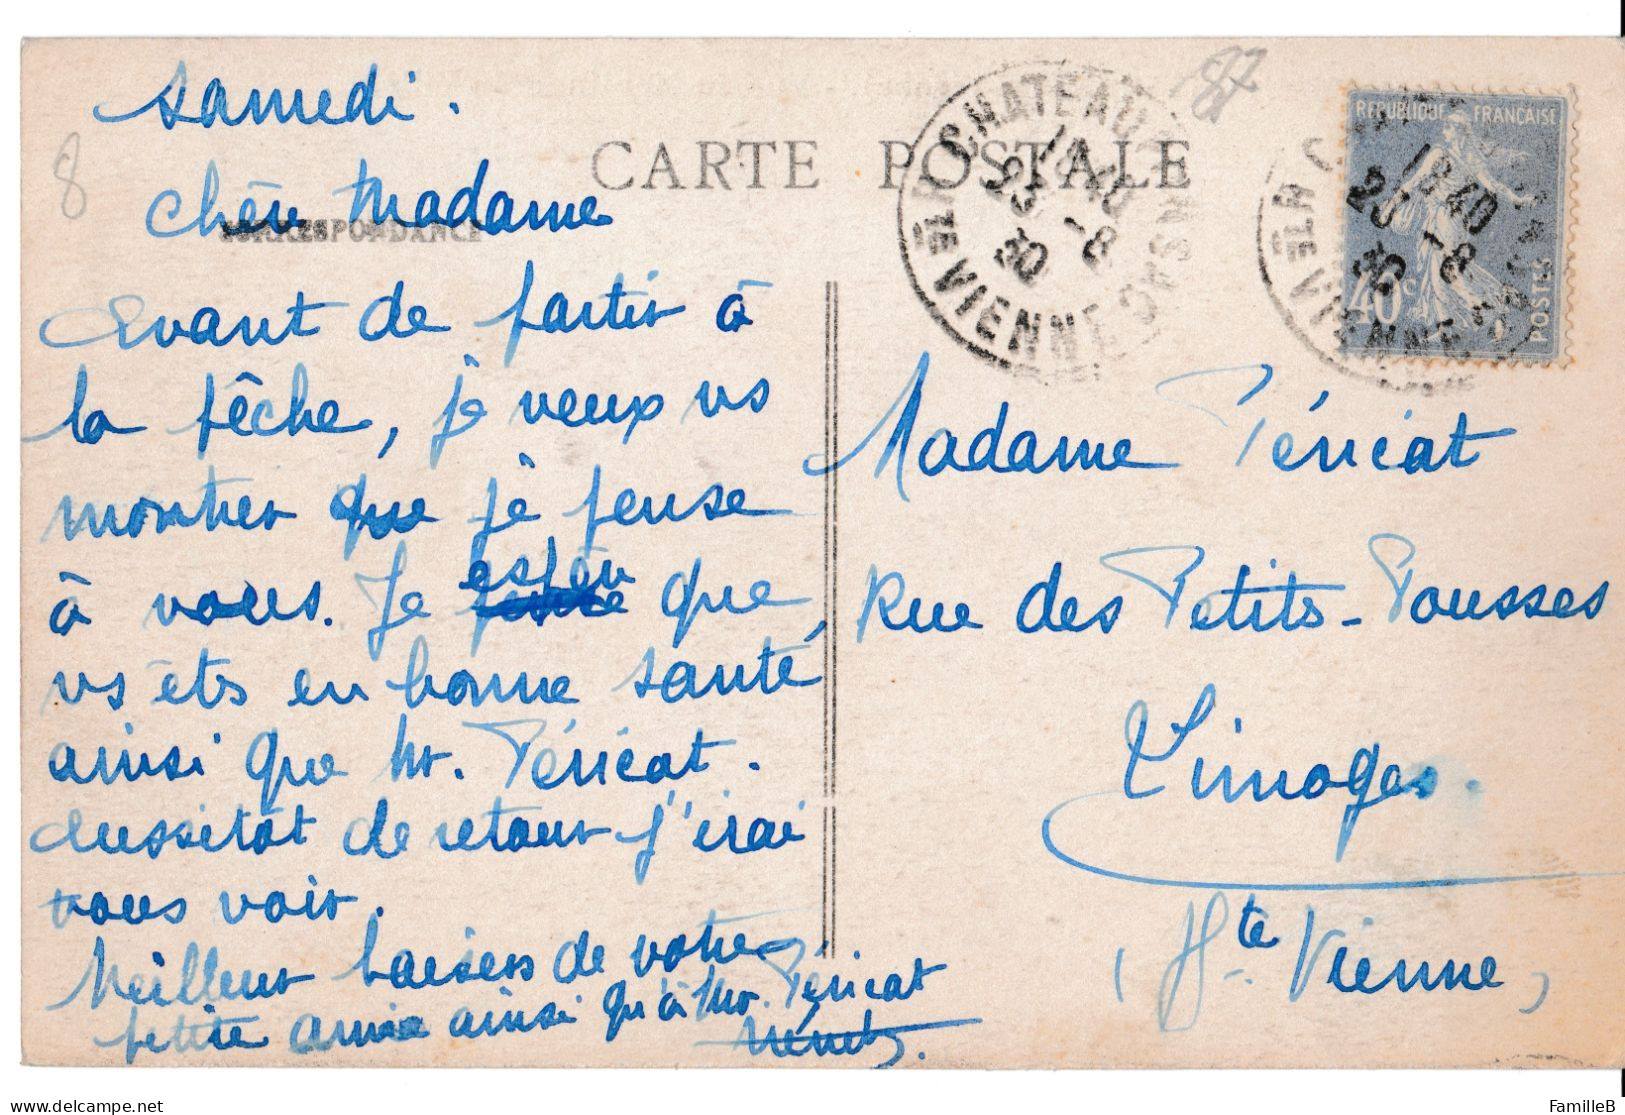 samedi.
8
87
CARTE POSTALE
CORRESPONDANCE
chère Madame
Avant de partir à
la pêche, je veux vs
montrer que je pense
à vous. Je espère que
vs êts en bonne santé,
ainsi que Mr. Péricat.
Aussitôt de retour j'irai
vous voir.
Meilleur baisers de votre
petite amie ainsi qu'à Mr. Péricat
CHATEAUPONSAC
18 40
23 -8
30
HTE VIENNE
REPUBLIQUE FRANÇAISE
40c
POSTES
18 40
23 -8
30
HTE VIENNE
Madame Péricat
Rue des Petits-Pousses
Limoges.
(Hte Vienne)
delcampe.net
FamilleB